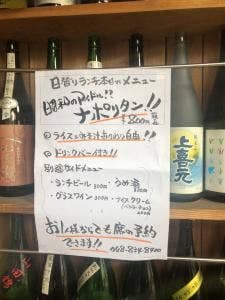 日替りランチ本日のメニュー
昭和のアイドル!?
ナポリタン!!
¥800
◎ライス&みそ汁おかわり自由!!
◎ドリンクバー付き!!
別途サイドメニュー
・ランチビール 300円
・グラスワイン 300円
・アイスクリーム
お1人様からでも席の予約
できます!!
上喜元